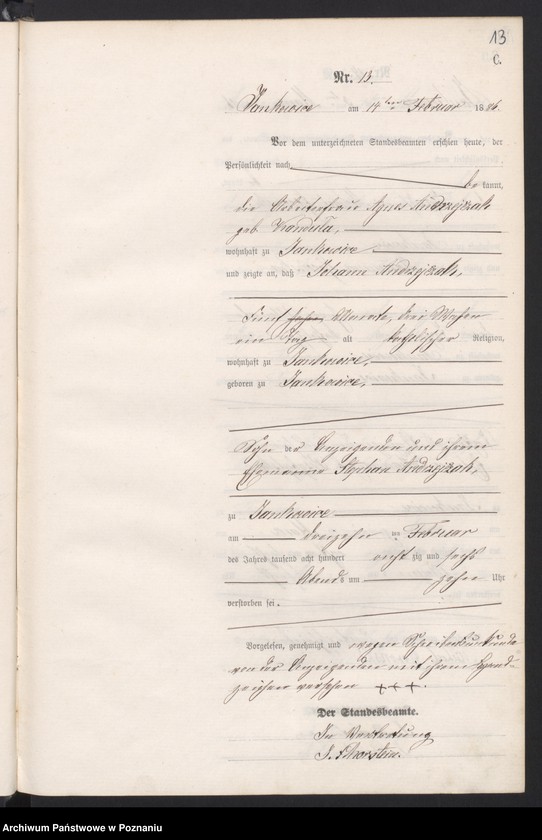 13
C.
Nr. 13.
Jankowice am 14ten Februar 1886.
Vor dem unterzeichneten Standesbeamten erschien heute, der
Persönlichkeit nach
bekannt,
die Arbeiterfrau Agnes Andrzejzak
geb. Kandula,
wohnhaft zu Jankowice
und zeigte an, daß Johann Andrzejzak,
fünf Jahre, Monate, drei Wochen
ein Tag alt katholischer Religion,
wohnhaft zu Jankowice,
geboren zu Jankowice,
Sohn der Anzeigenden und ihrem
Ehemanne Stephan Andrzejzak,
zu Jankowice
am dreizehn ten Februar
des Jahres tausend acht hundert acht zig und sechs
Abends um zehn Uhr
verstorben sei.
Vorgelesen, genehmigt und wegen Schreibensunkunde
von der Anzeigenden mit ihrem Hand-
zeichen versehen +++.
Der Standesbeamte.
In Vertretung